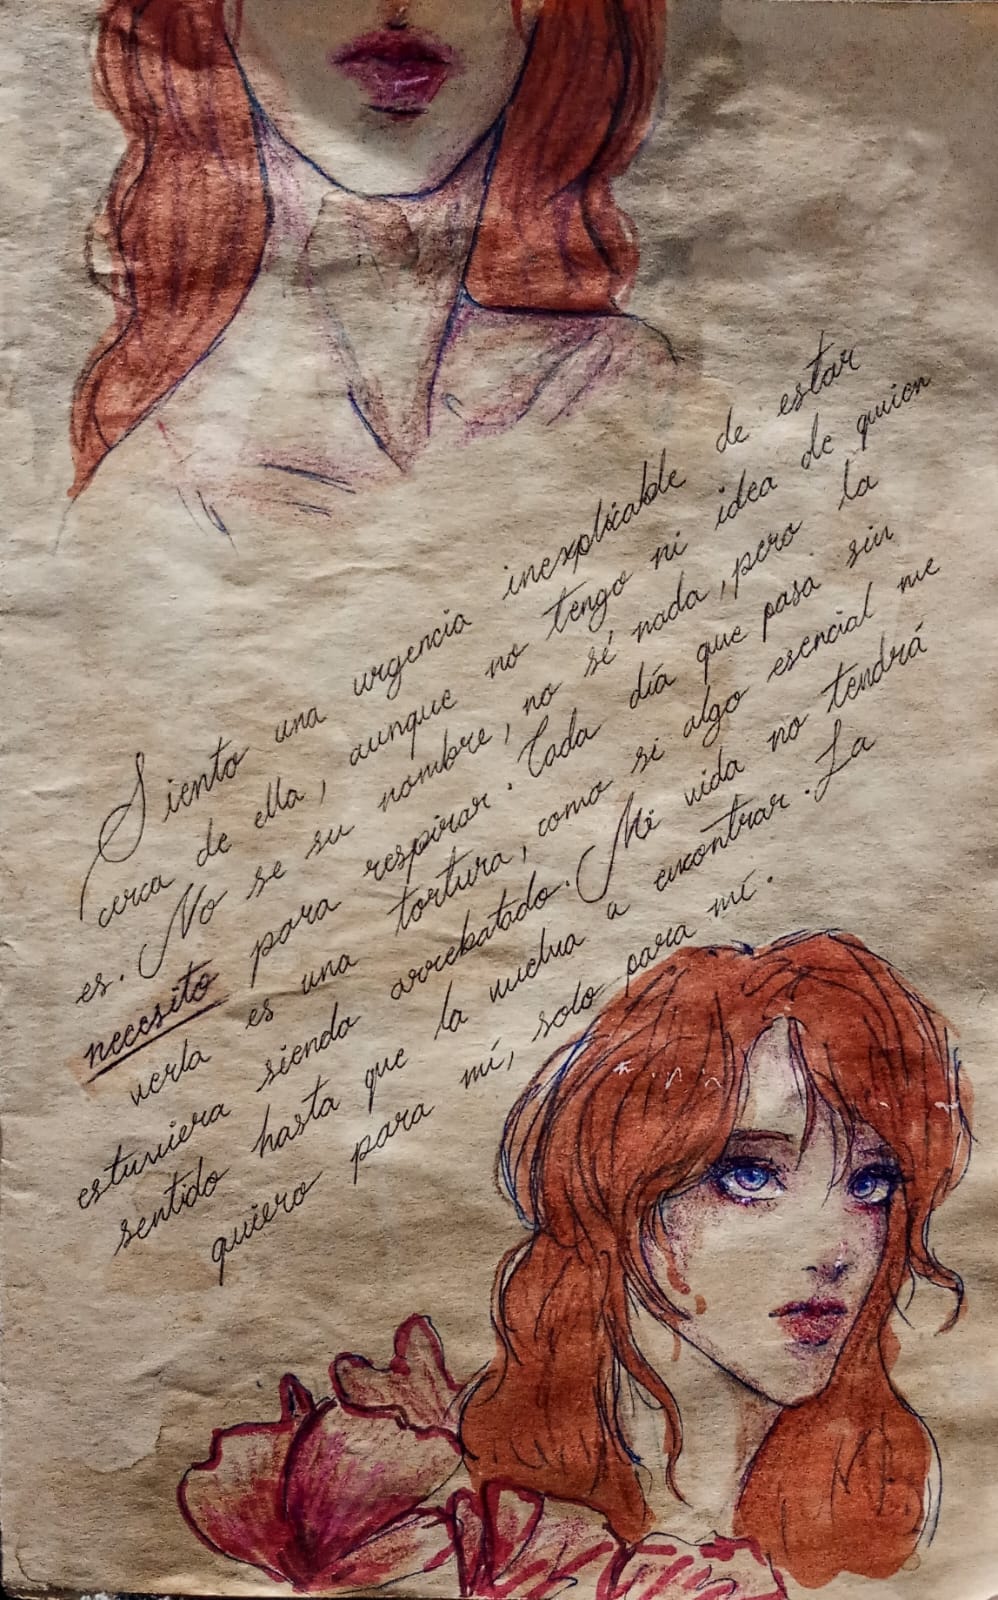 Siento una urgencia inexplicable de estar
cerca de ella, aunque no tengo ni idea de quien
es. No se su nombre, no sé nada, pero la
necesito para respirar. Cada día que pasa sin
verla es una tortura, como si algo esencial me
estuviera siendo arrebatado. Mi vida no tendrá
sentido hasta que la vuelva a encontrar. La
quiero para mí, solo para mí.